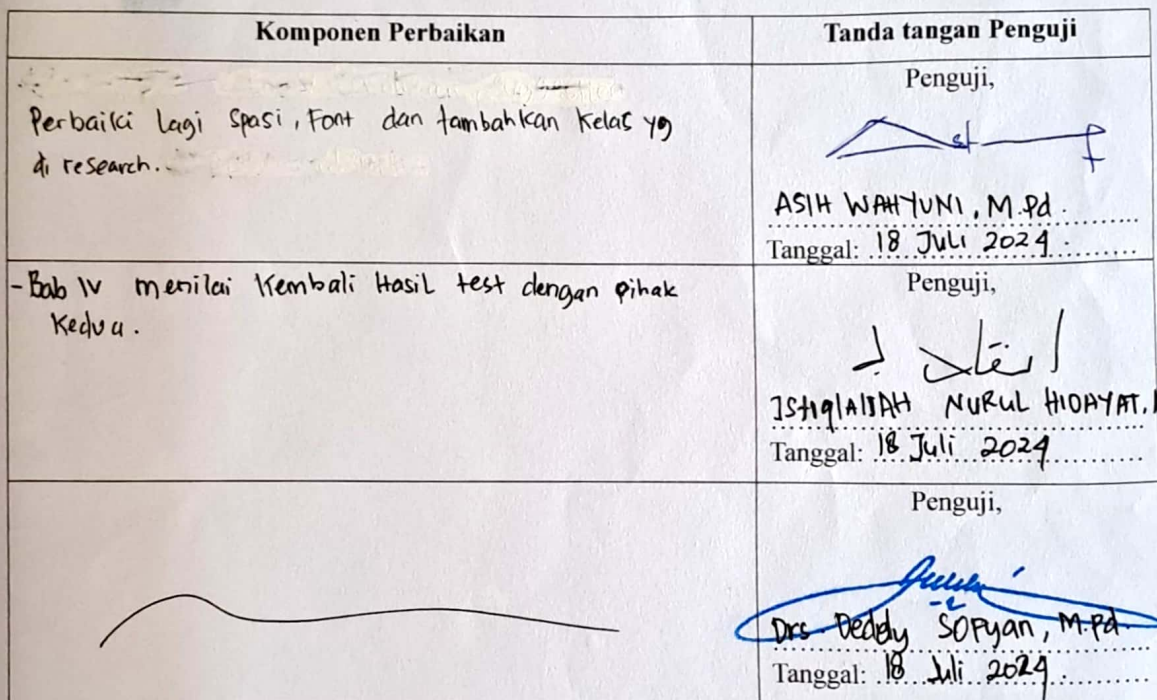 Komponen Perbaikan
Tanda tangan Penguji
Perbaiki lagi spasi, Font dan tambahkan Kelas yg
di research.
Penguji,
ASIH WAHYUNI, M.Pd.
Tanggal: 18 Juli 2024.
- Bab IV menilai Kembali Hasil test dengan pihak
Kedua.
Penguji,
NURUL HIDAYAT,
Tanggal: 18 Juli 2024
Penguji,
Drs. Deddy SOPyan, M.Pd.
Tanggal: 18 Juli 2024.